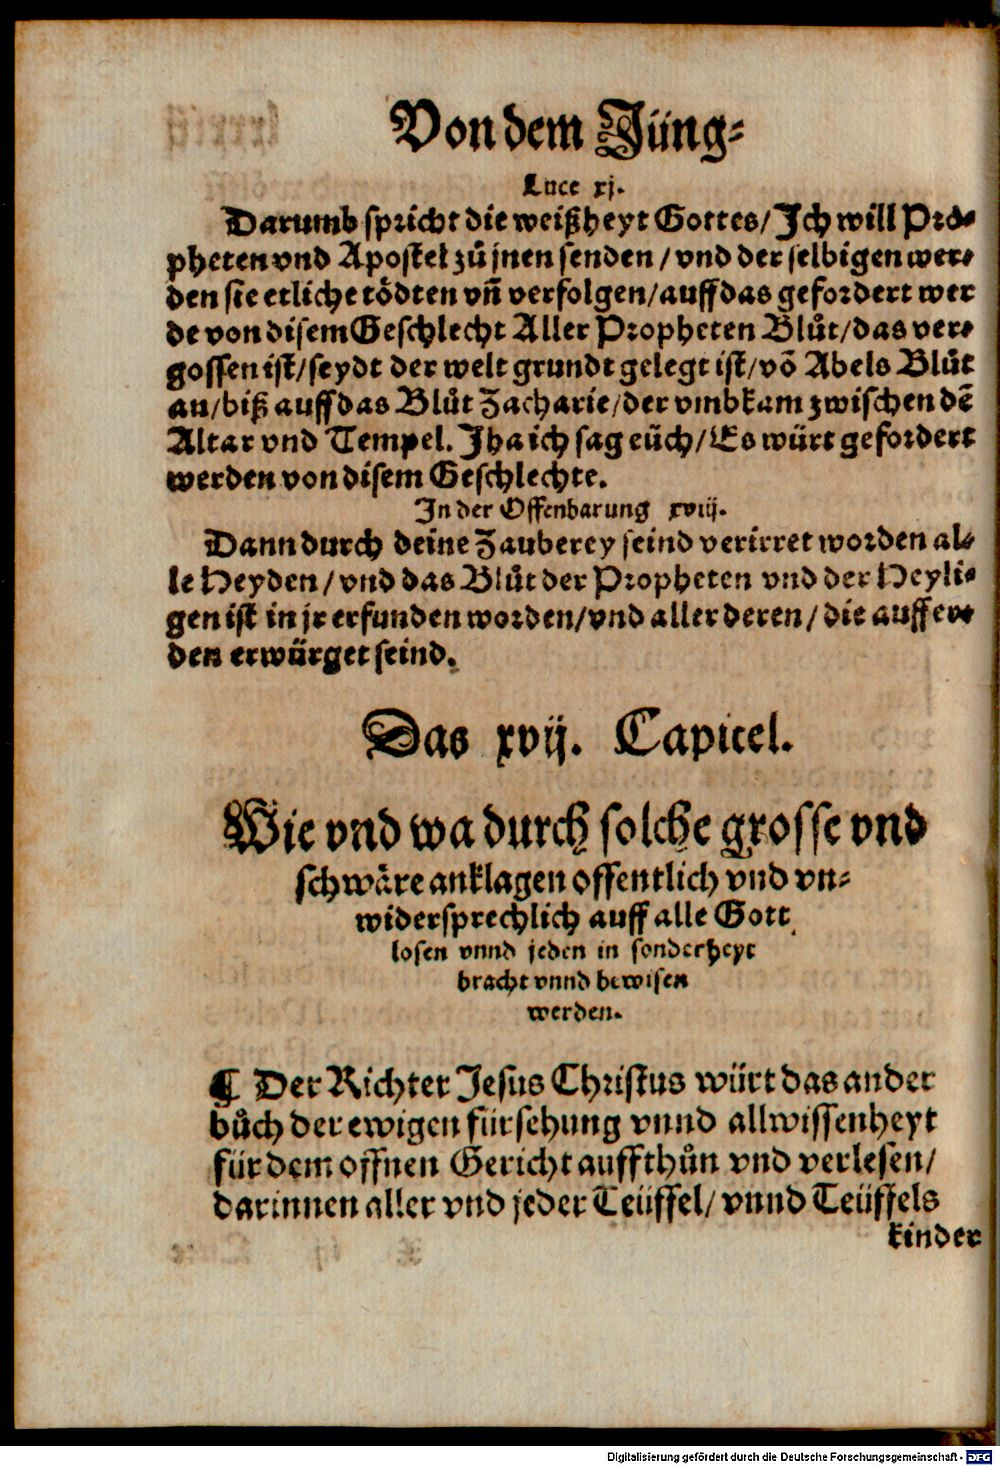 Von dem Jüng⸗
Luce xj.
Darumb spricht die weißheyt Gottes/ Jch will Pro⸗
pheten vnd Apostel zů jnen senden / vnd der selbigen wer⸗
den sie etliche tödten vñ verfolgen/ auff das gefordert wer
de von disem Geschlecht Aller Propheten Blůt/ das ver⸗
gossen ist/ seydt der welt grundt gelegt ist/ võ Abels Blůt
an/ biß auff das Blůt Zacharie/ der vmbkam zwischen dẽ
Altar vnd Tempel. Jha ich sag eüch/ Es würt gefordert
werden von disem Geschlechte.
Jn der Offenbarung xviij.
Dann durch deine Zauberey seind verirret worden al⸗
le Heyden / vnd das Blůt der Propheten vnd der Heyli⸗
gen ist in jr erfunden worden/ vnd aller deren / die auff er⸗
den erwürget seind.
Das xvij. Capitel.
Wie vnd wa durch solche grosse vnd
schwäre anklagen offentlich vnd vn⸗
widersprechlich auff alle Gott
losen vnnd jeden in sonderheyt
bracht vnnd bewisen
werden.
¶ Der Richter Jesus Christus würt das ander
bůch der ewigen fürsehung vnnd allwissenheyt
für dem offnen Gericht auffthůn vnd verlesen/
darinnen aller vnd jeder Teüffel/ vnnd Teüffels
kinder
Digitalisierung gefördert durch die Deutsche Forschungsgemeinschaft - DFG